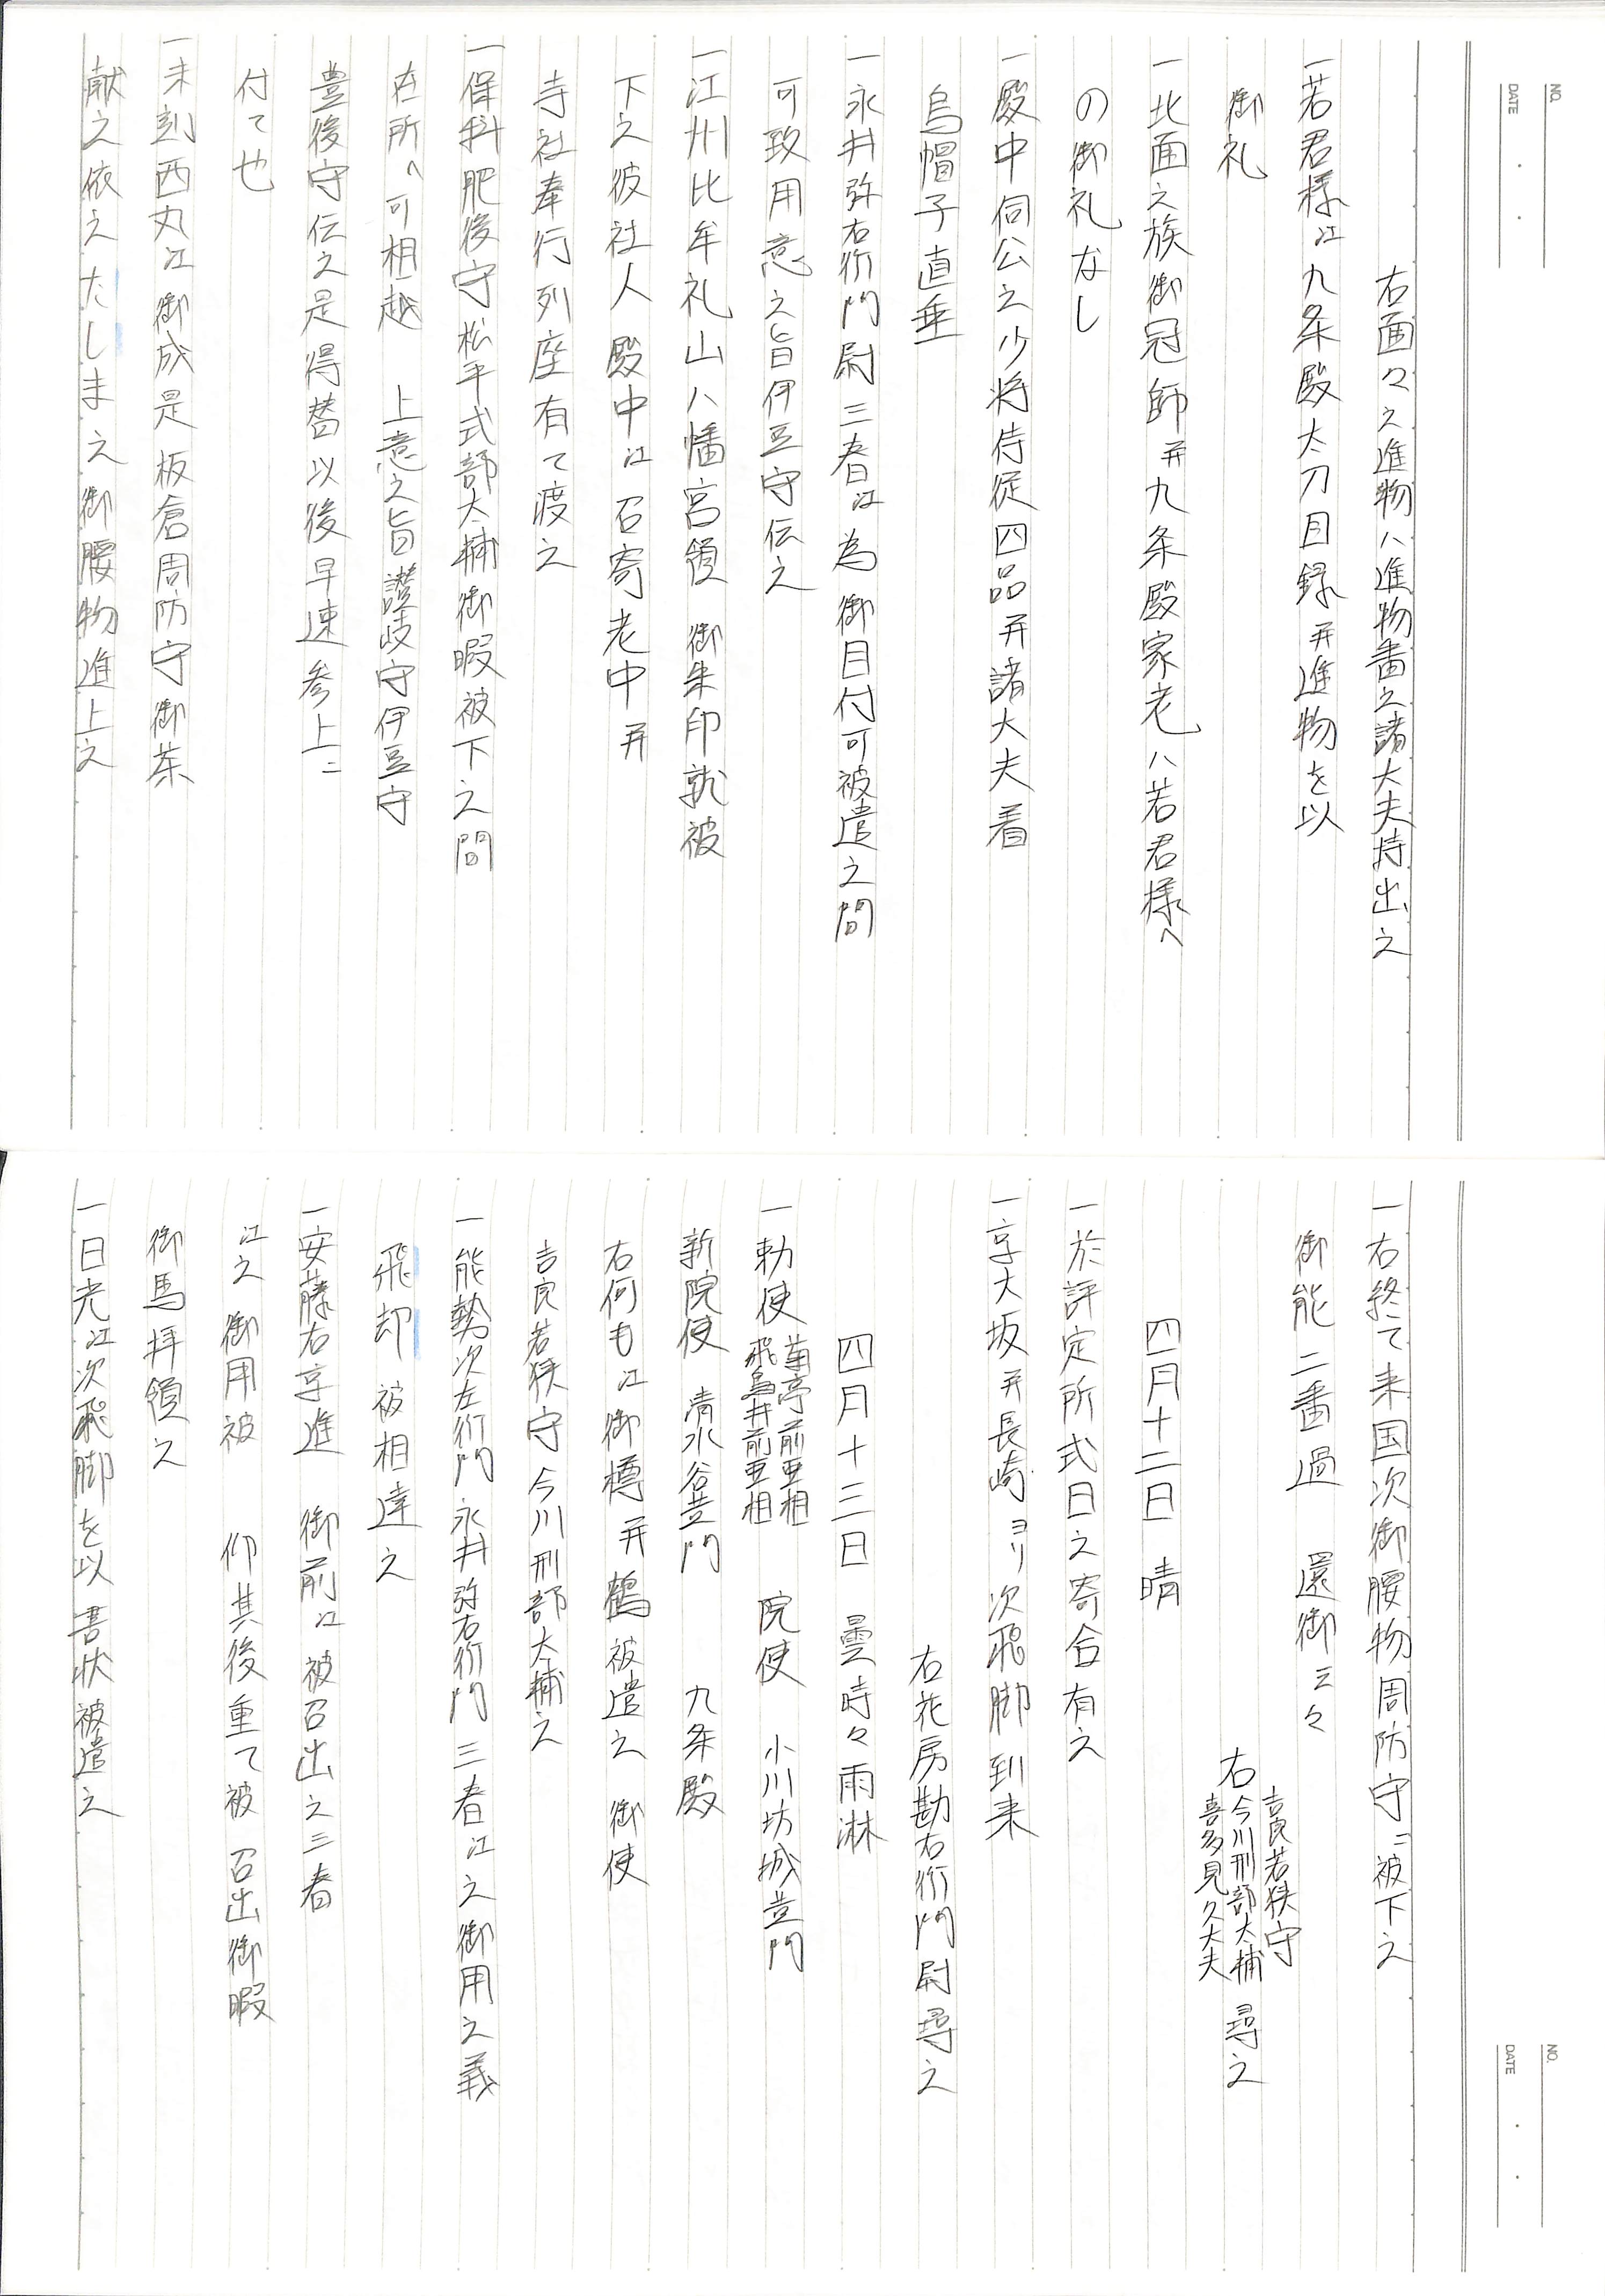 NO.
DATE
右面々之進物ハ進物番之諸大夫持出之
一若君様江九条殿太刀目録并進物を以
御礼
一北面之族御冠師并九条殿家老ハ若君様へ
の御礼なし
一殿中伺公之少将侍従四品并諸大夫着
烏帽子直垂
一永井弥右衛門尉三春江為御目付可被遣之間
可致用意之旨伊豆守伝之
一江州比牟礼山八幡宮領 御朱印就被
下之彼社人殿中江召寄老中并
寺社奉行列座有て渡之
一保科肥後守松平式部大輔御暇被下之間
在所へ可相越 上意之旨讃岐守伊豆守
豊後守伝之是得替以後早速参上ニ
付て也
一未刻西丸江御成是板倉周防守御茶
献之依之たしま之御腰物進上之
NO.
DATE
一右終て来国次御腰物周防守ニ被下之
御能二番過 還御云々
吉良若狭守
右今川刑部大輔 尋之
喜多見久大夫
四月十二日 晴
一於評定所式日之寄合有之
一京大坂并長崎ヨリ次飛脚到来
右花房勘右衛門尉尋之
四月十三日 曇時々雨淋
一勅使 菊亭前亜相 飛鳥井前亜相 院使 小川坊城黄門
新院使 清水谷黄門 九条殿
右何も江御樽并鶴被遣之 御使
吉良若狭守 今川刑部大輔之
一能勢次左衛門 永井弥右衛門 三春江之御用之義
飛却 被相達之
一安藤右京進 御前江被召出之三春
江之 御用被 仰其後重て被 召出御暇
御馬拝領之
一日光江次飛脚を以 書状被遣之